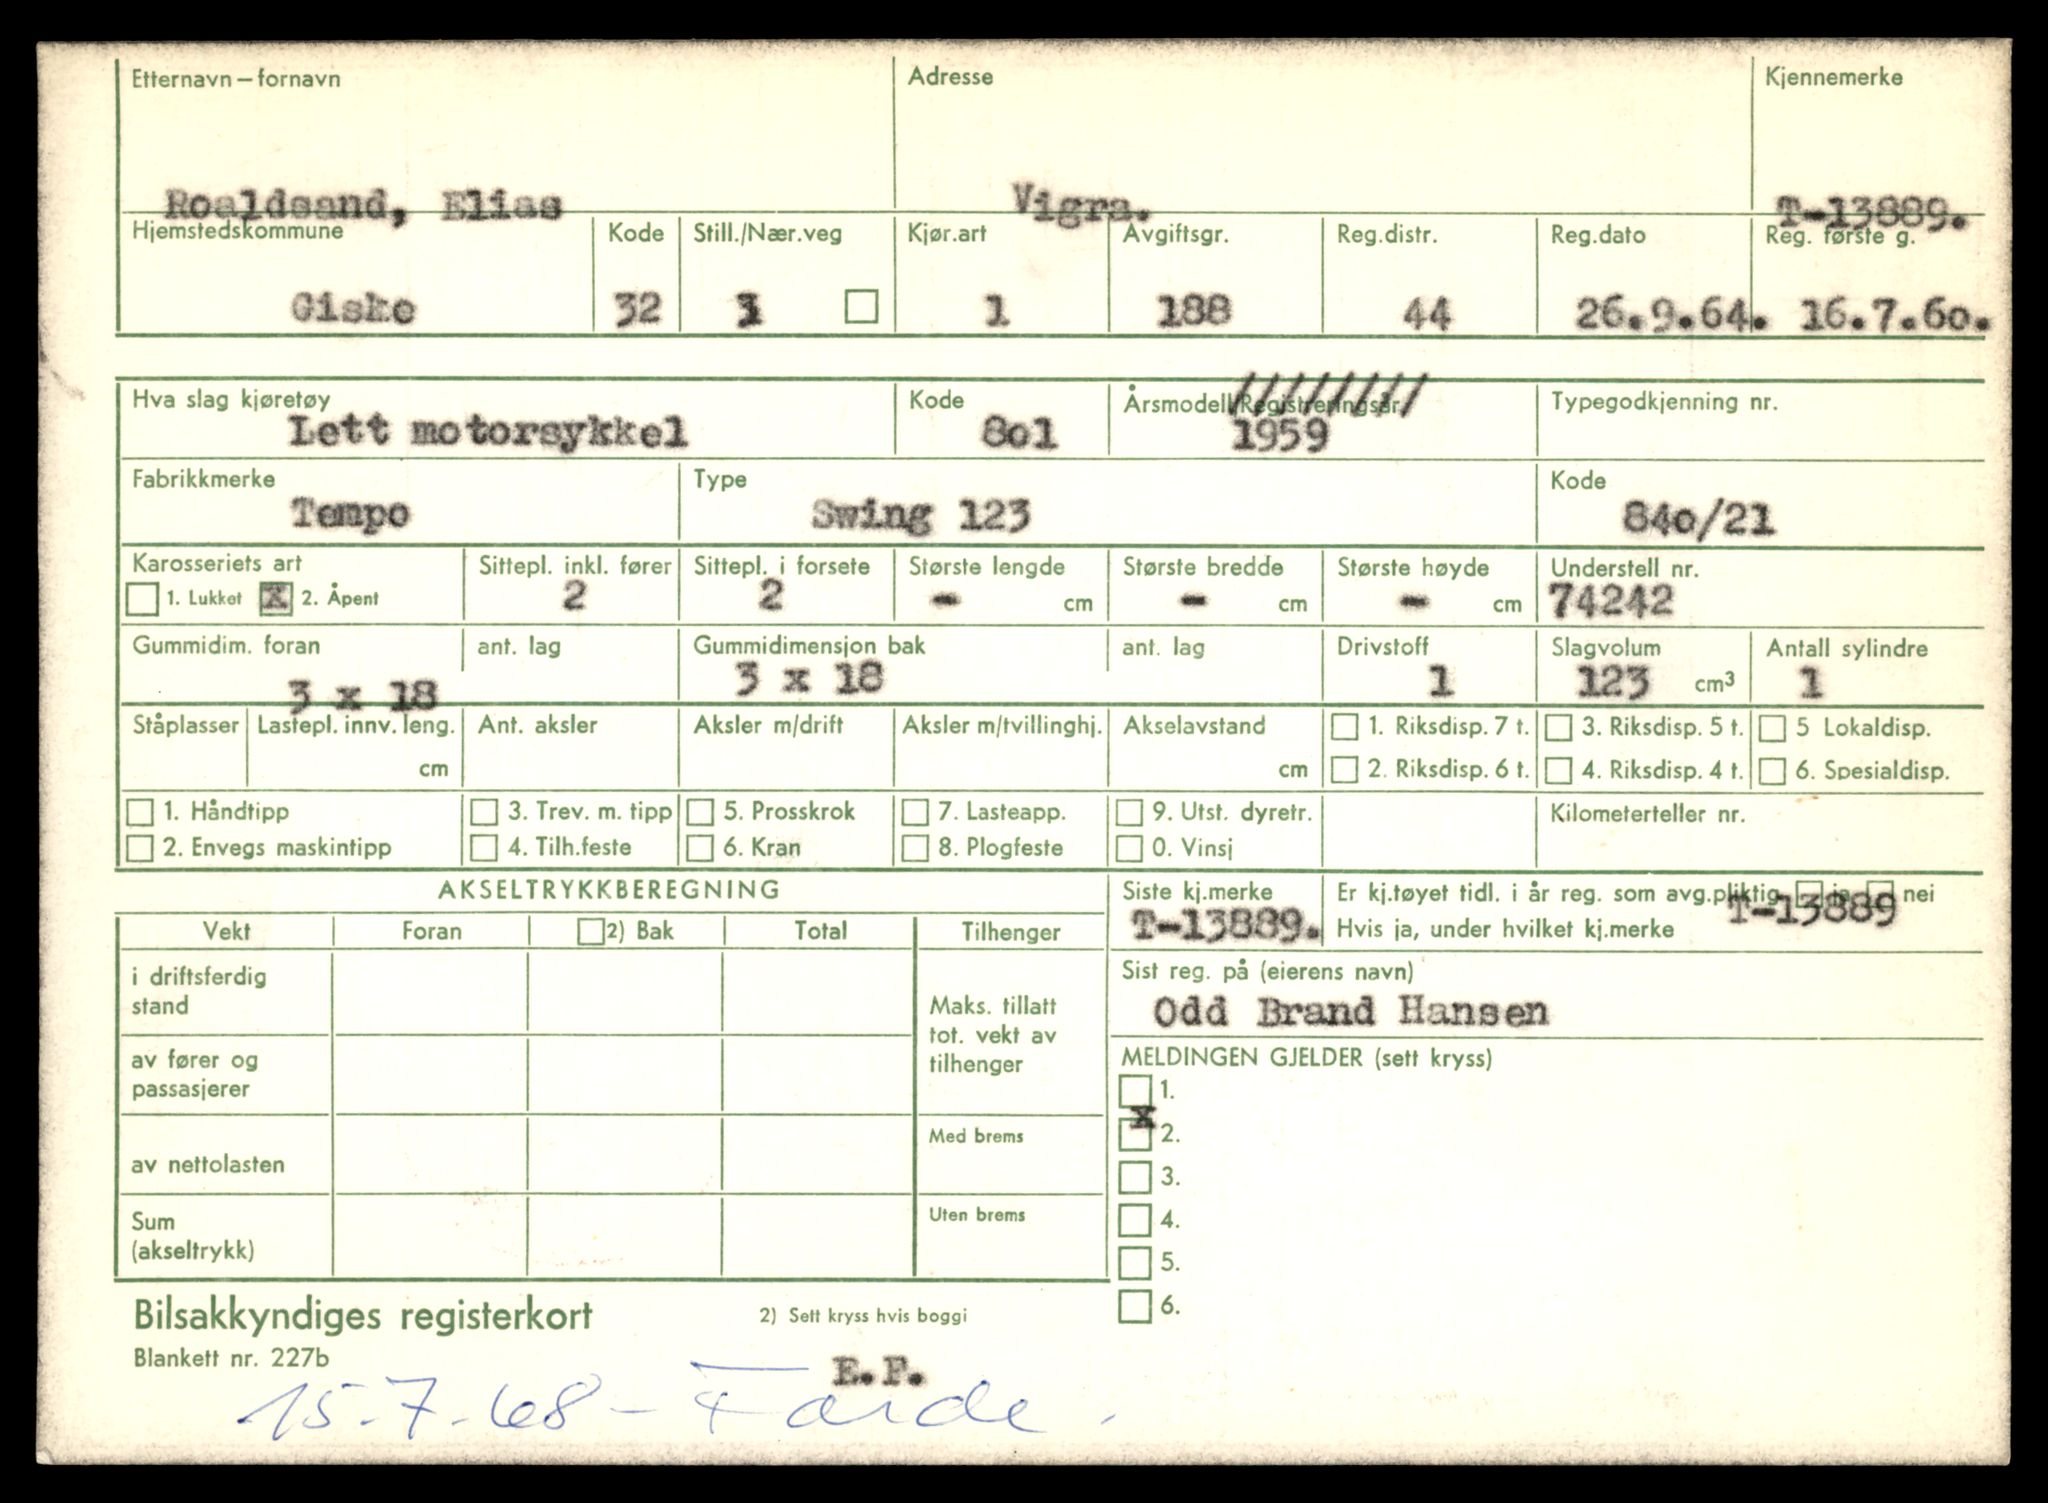 Etternavn – fornavn Adresse Kjennemerke
Roaldsand, Elias Vigra. T-13889.
Hjemstedskommune Kode Still./Nær.veg Kjør.art Avgiftsgr. Reg.distr. Reg.dato Reg. første g.
Giske 32 1 188 44 26.9.64. 16.7.60.
Hva slag kjøretøy Kode Årsmodell/Registreringsår Typegodkjenning nr.
Lett motorsykkel 801 1959
Fabrikkmerke Type Kode
Tempo Swing 123 840/21
Karosseriets art Sittepl. inkl. fører Sittepl. i forsete Største lengde Største bredde Største høyde Understell nr.
1. Lukket x 2. Åpent 2 2 - cm - cm - cm 74242
Gummidim. foran ant. lag Gummidimensjon bak ant. lag Drivstoff Slagvolum Antall sylindre
3 x 18 3 x 18 1 123 cm³ 1
Ståplasser Lastepl. innv. leng. Ant. aksler Aksler m/drift Aksler m/tvillinghj. Akselavstand 1. Riksdisp. 7 t. 3. Riksdisp. 5 t. 5 Lokaldisp.
cm cm 2. Riksdisp. 6 t. 4. Riksdisp. 4 t. 6. Spesialdisp.
1. Håndtipp 3. Trev. m. tipp 5. Prosskrok 7. Lasteapp. 9. Utst. dyretr. Kilometerteller nr.
2. Envegs maskintipp 4. Tilh.feste 6. Kran 8. Plogfeste 0. Vinsj
AKSELTRYKKBEREGNING Siste kj.merke Er kj.tøyet tidl. i år reg. som avg.pliktig ja nei
T-13889. Hvis ja, under hvilket kj.merke T-13889
Vekt Foran 2) Bak Total Tilhenger
i driftsferdig stand
Maks. tillatt tot. vekt av tilhenger
Sist reg. på (eierens navn)
Odd Brand Hansen
av fører og passasjerer
MELDINGEN GJELDER (sett kryss)
1.
x 2.
Med brems
av nettolasten
3.
4.
Sum (akseltrykk)
Uten brems
5.
6.
Bilsakkyndiges registerkort 2) Sett kryss hvis boggi
Blankett nr. 227b
E.F.
15.7.68 – Førde.